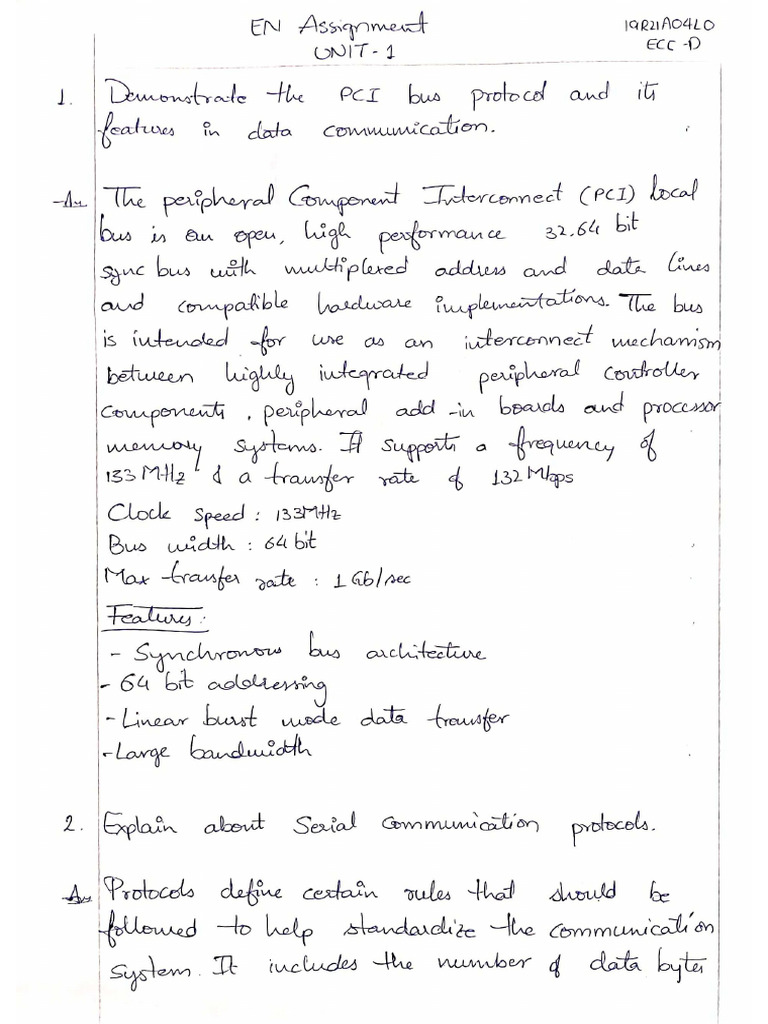 EN Assignment
19R21A04L0
UNIT-1
ECC-D
1. Demonstrate the PCI bus protocol and its
features in data communication.
Ans The peripheral Component Interconnect (PCI) local
bus is an open, high performance 32.64 bit
sync bus with multiplexed address and data lines
and compatible hardware implementations. The bus
is intended for use as an interconnect mechanism
between highly integrated peripheral controller
components, peripheral add-in boards and processor
memory systems. It supports a frequency of
133 MHz & a transfer rate of 132 Mbps
Clock speed : 133MHz
Bus width : 64 bit
Max transfer rate : 1 Gb/sec
Features:
- Synchronous bus architecture
- 64 bit addressing
- Linear burst mode data transfer
- Large bandwidth
2. Explain about Serial Communication protocols.
Ans Protocols define certain rules that should be
followed to help standardize the communication
system. It includes the number of data bytes